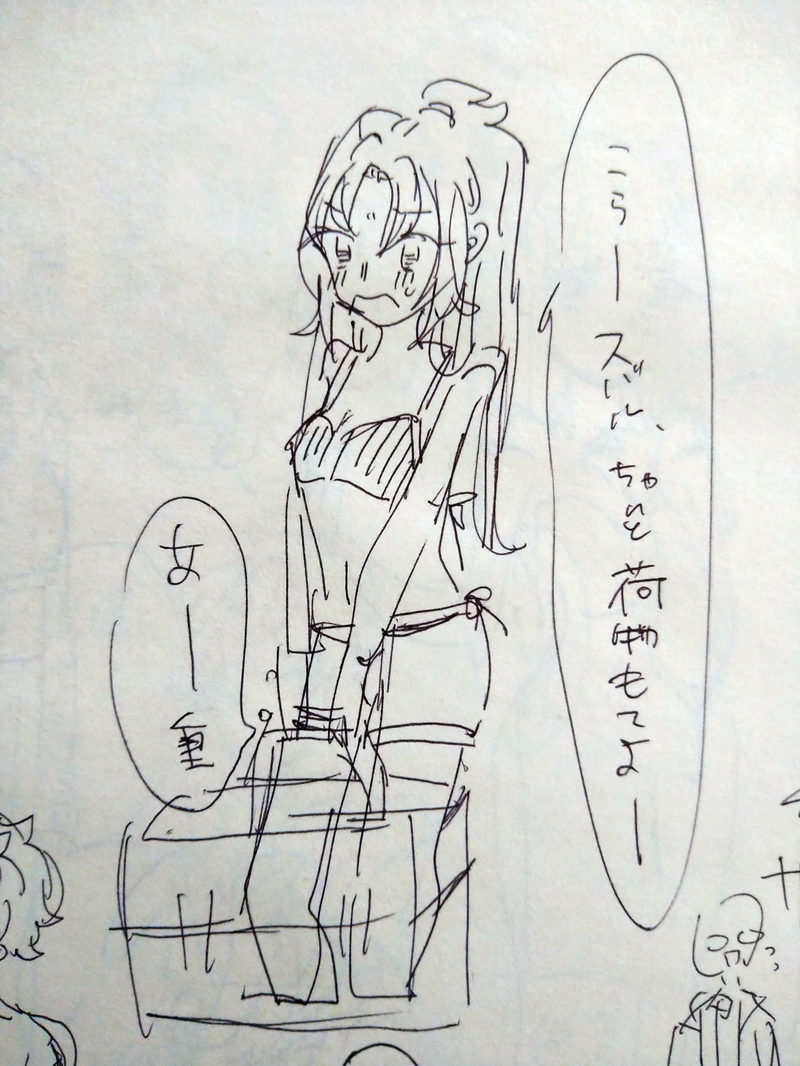 こらースバル、ちゃんと荷物もてよー
あー重